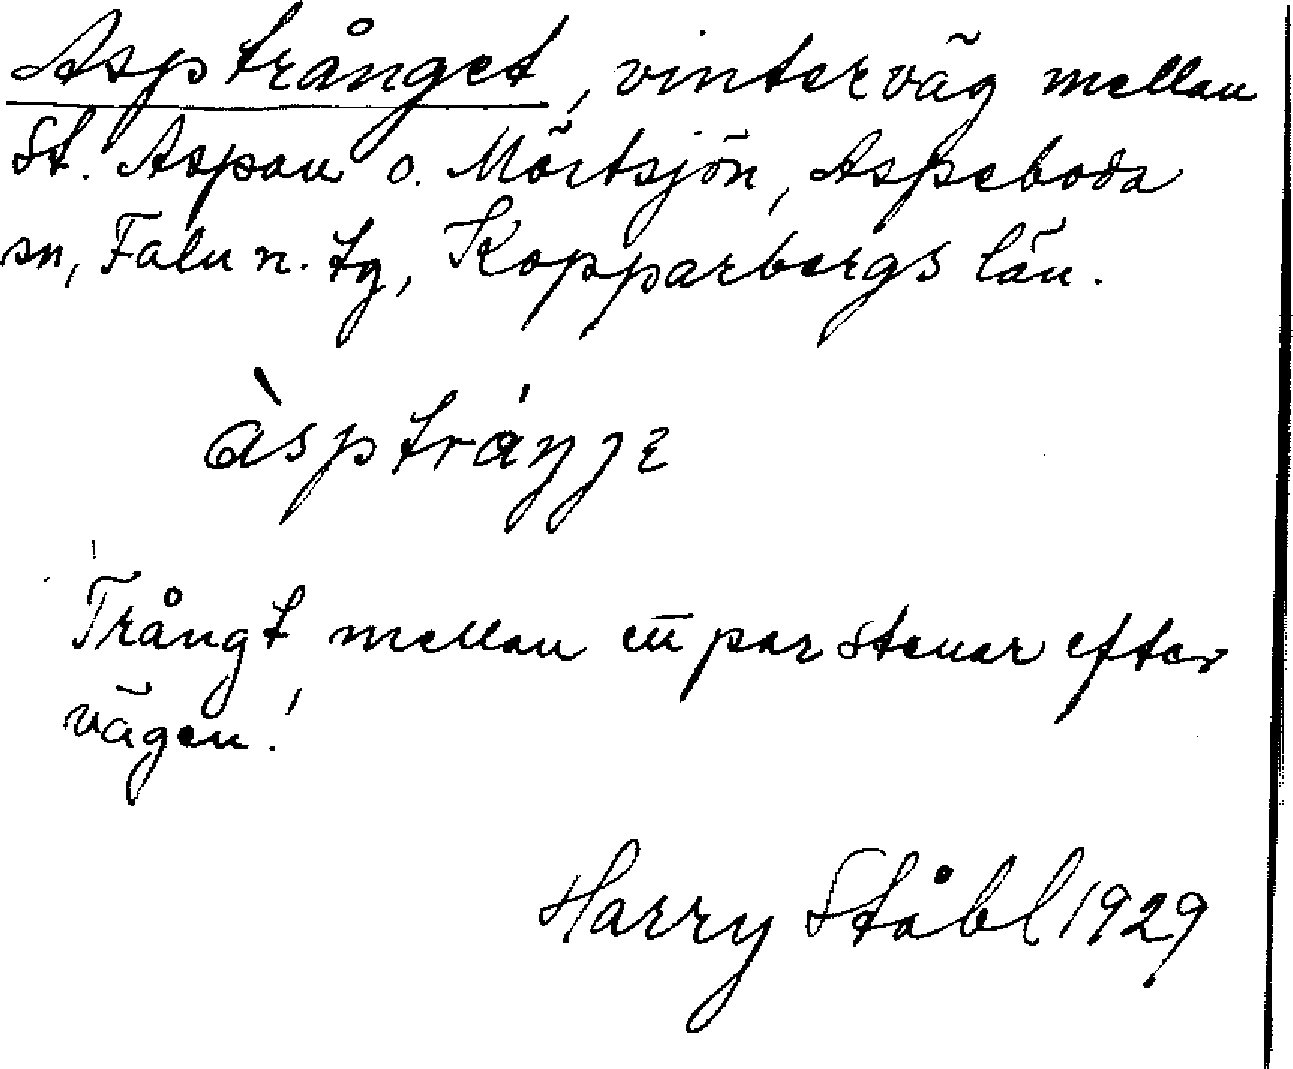 Asptrånget, vinterväg mellan
St. Aspan o. Mörtsjön, Aspeboda
sn, Falu n. tg, Kopparbergs län.
àsptráŋɟɛ
Trångt mellan ett par stenar efter
vägen!
Harry Ståbl 1929